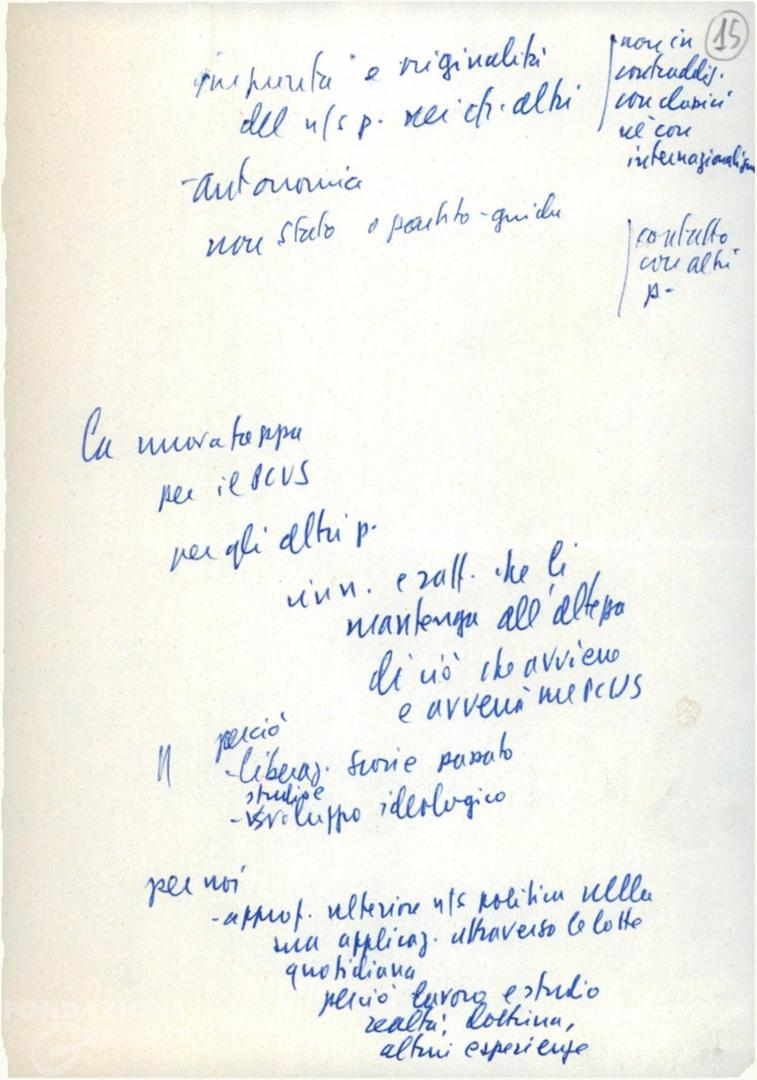 15
impronta e originalità
del n/s p. nei cfr. altri
non in
contraddiz.
con classici
nè con
internazionalism
- autonomia
non stato o partito-guida
contatto
con altri
p-
La nuova tappa
per il PCUS
per gli altri p.
rinn. e raff. che li
mantenga all'altezza
di ciò che avviene
e avverrà nel PCUS
perciò
- liberaz. scorie passato
studio e
- sviluppo ideologico
per noi
- approf. ulteriore n/s politica nella
sua applicaz. attraverso le lotte
quotidiana
perciò lavoro e studio
realtà, dottrina,
altrui esperienze
FONDAZI